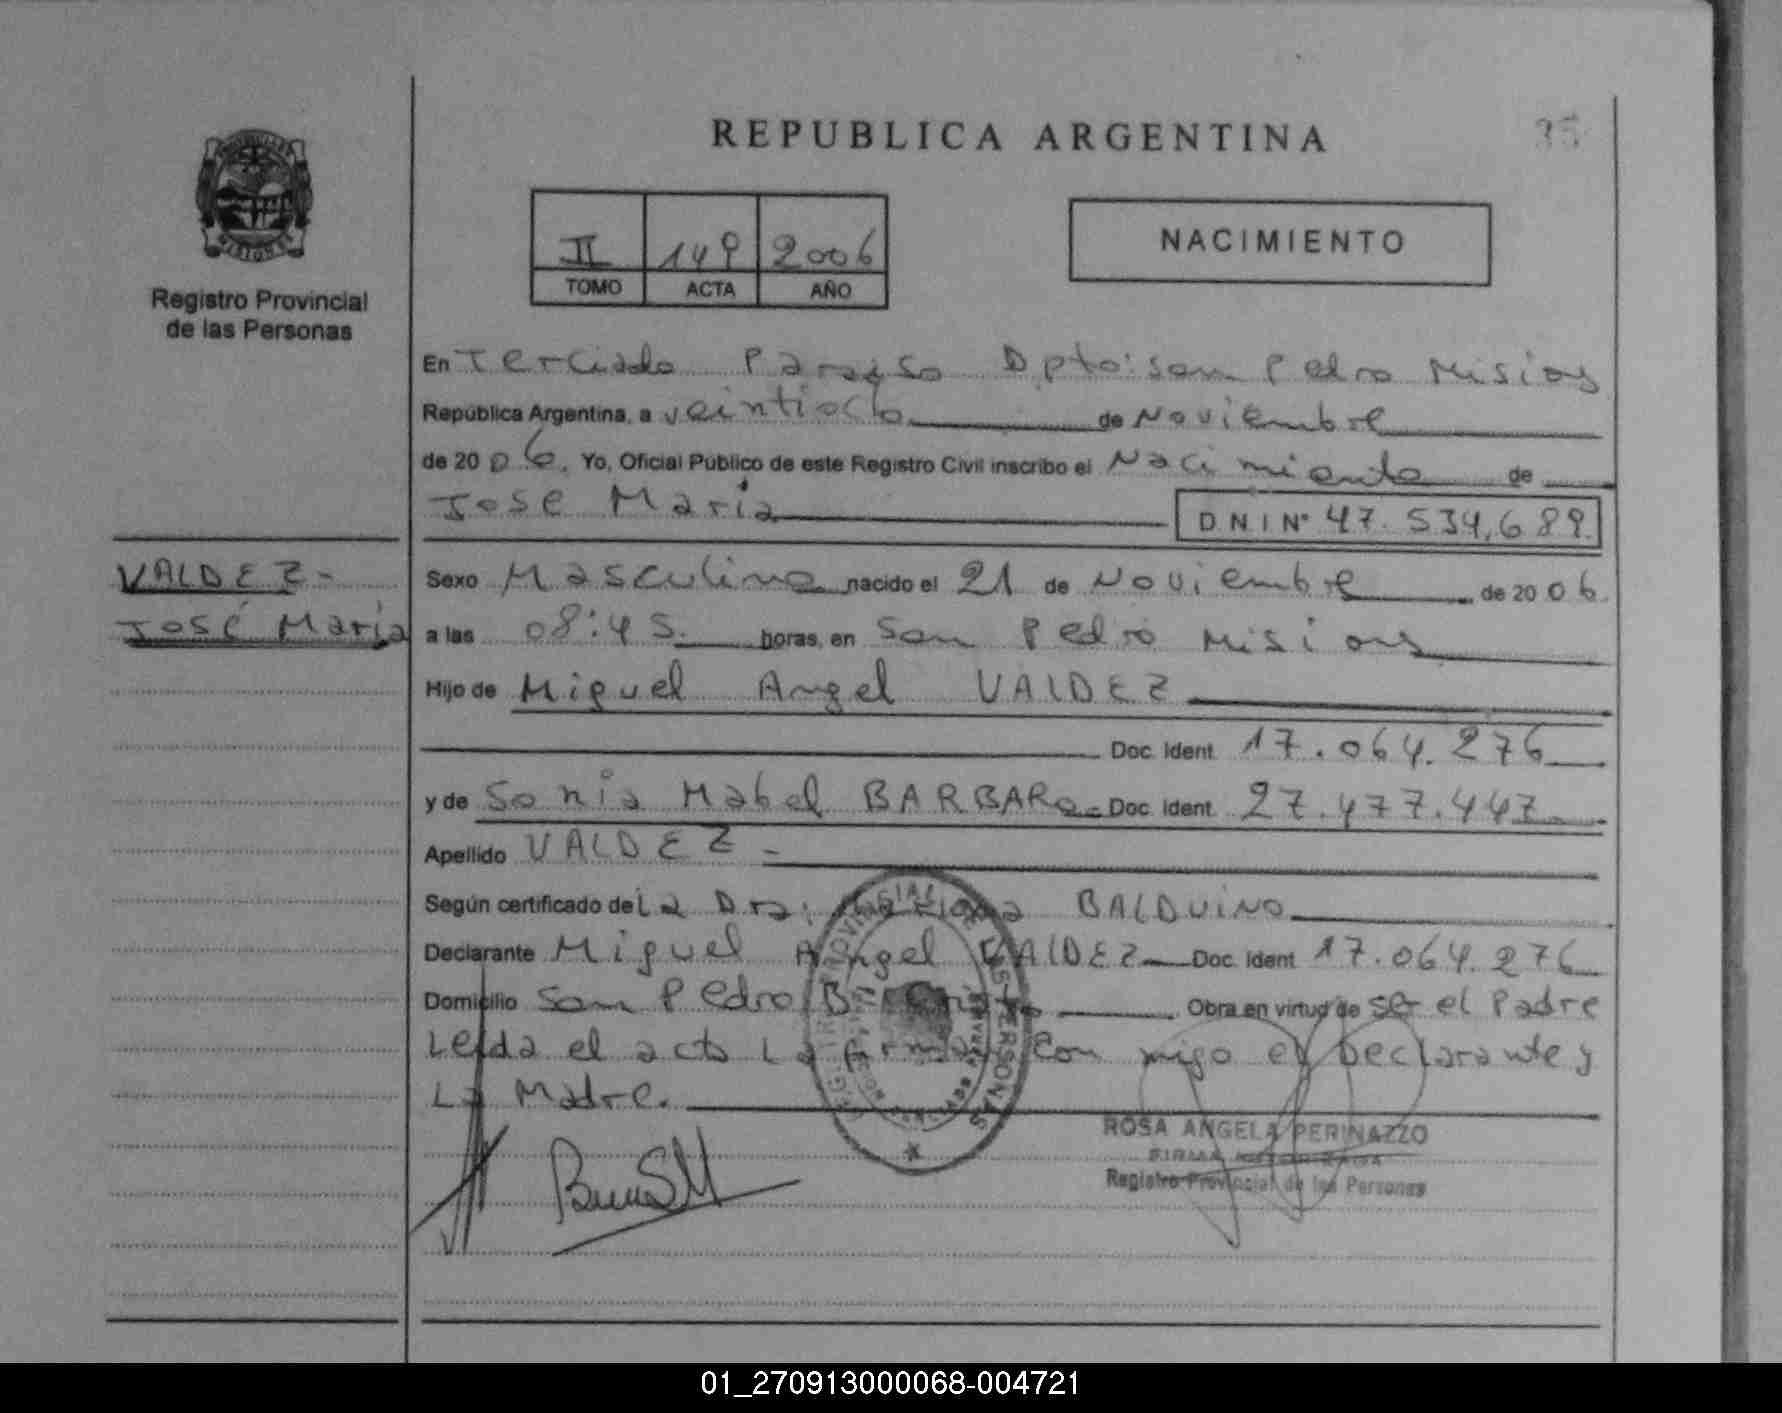 REPUBLICA ARGENTINA
35
II 149 2006
TOMO ACTA AÑO
NACIMIENTO
Registro Provincial
de las Personas
En Terciado Paraiso Dpto: San Pedro Misiones
República Argentina, a veintiocho de Noviembre
de 2006. Yo, Oficial Público de este Registro Civil inscribo el Nacimiento de
José María D N I Nº 47.534.689.
VALDEZ-
José María
Sexo Masculino nacido el 21 de Noviembre de 2006
a las 08:45. horas, en San Pedro Misiones
Hijo de Miguel Angel VALDEZ
Doc. Ident. 17.064.276
y de Sonia Mabel BARBARO- Doc. Ident. 27.477.447
Apellido VALDEZ-
Según certificado de La Dra: BALDUINO
Declarante Miguel Angel VALDEZ Doc. Ident. 17.064.276
Domicilio San Pedro Obra en virtud de ser el Padre
Leida el acta La firman con migo el Declarante y
La Madre.
ROSA ANGELA PERINAZZO
FIRMA AUTORIZADA
Registro Provincial de las Personas
01_270913000068-004721